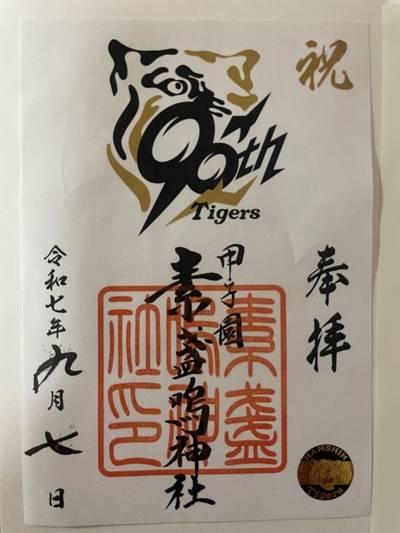 祝
90th
Tigers
奉拝
甲子園
素盞嗚神社
素盞
嗚神
社印
令和七年九月七日
HANSHIN
Tigers